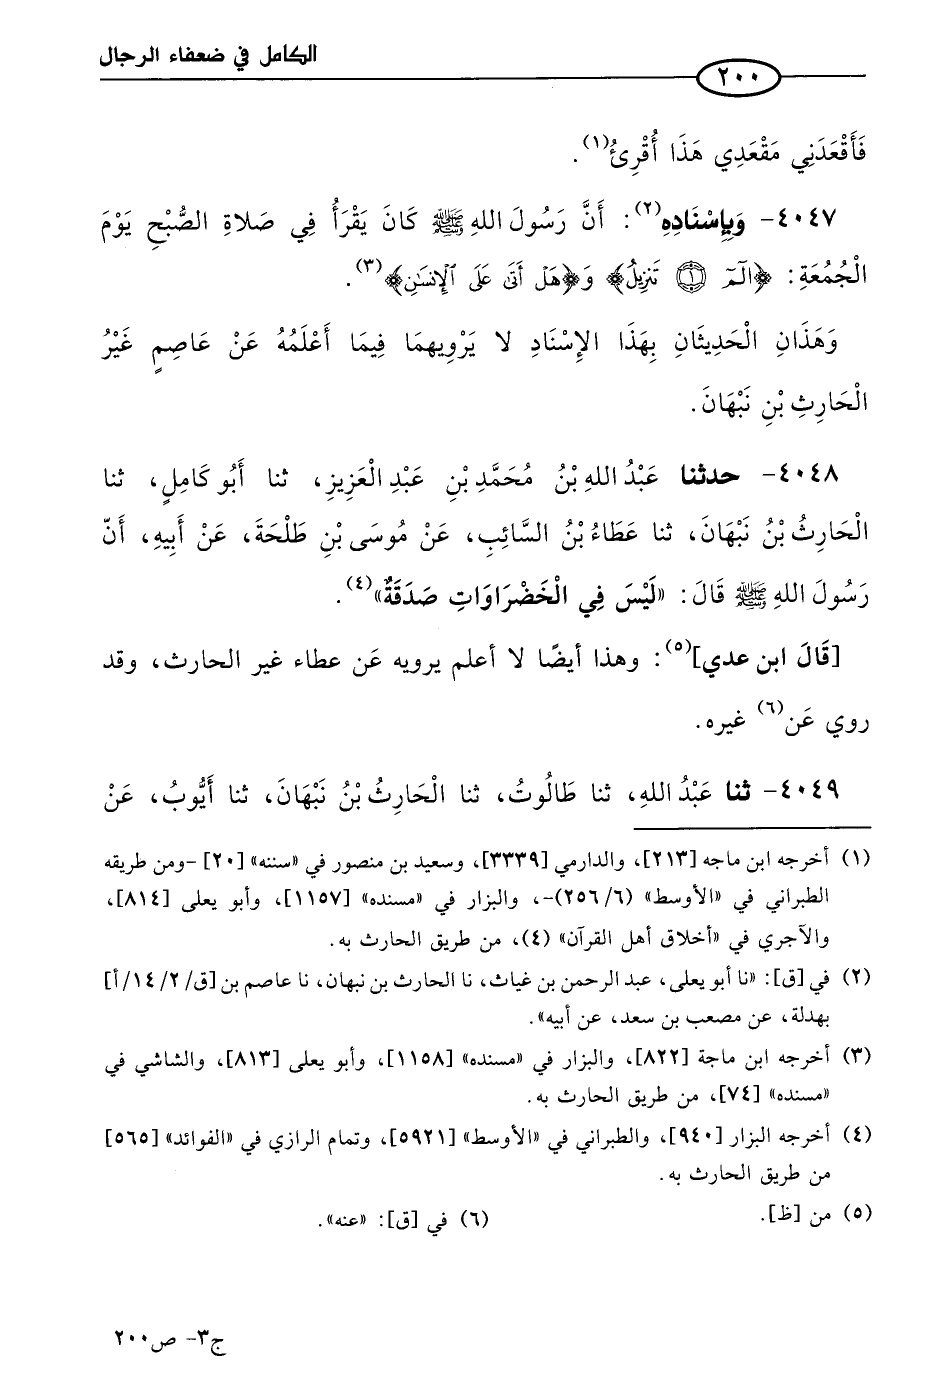 الكامل في ضعفاء الرجال
٢٠٠
فَأَقْعَدَنِي مَقْعَدِي هَذَا أُقْرِئُ(١).
٤٠٤٧- وَبِإِسْنَادِهِ(٢): أَنَّ رَسُولَ اللهِ ﷺ كَانَ يَقْرَأُ فِي صَلَاةِ الصُّبْحِ يَوْمَ
الْجُمُعَةِ: ﴿الٓمٓ ۝١ تَنزِيلُ﴾ وَ﴿هَلْ أَتَىٰ عَلَى ٱلْإِنسَٰنِ﴾(٣).
وَهَذَانِ الْحَدِيثَانِ بِهَذَا الإِسْنَادِ لا يَرْوِيهمَا فِيمَا أَعْلَمُهُ عَنْ عَاصِمٍ غَيْرُ
الْحَارِثِ بْنِ نَبْهَانَ.
٤٠٤٨- حدثنا عَبْدُ اللهِ بْنُ مُحَمَّدِ بْنِ عَبْدِ الْعَزِيزِ، ثنا أَبُو كَامِلٍ، ثنا
الْحَارِثُ بْنُ نَبْهَانَ، ثنا عَطَاءُ بْنُ السَّائِبِ، عَنْ مُوسَى بْنِ طَلْحَةَ، عَنْ أَبِيهِ، أَنَّ
رَسُولَ اللهِ ﷺ قَالَ: «لَيْسَ فِي الْخَضْرَاوَاتِ صَدَقَةٌ»(٤).
[قَالَ ابن عدي](٥): وهذا أيضًا لا أعلم يرويه عَن عطاء غير الحارث، وقد
روي عَن(٦) غيره.
٤٠٤٩- ثنا عَبْدُ اللهِ، ثنا طَالُوتُ، ثنا الْحَارِثُ بْنُ نَبْهَانَ، ثنا أَيُّوبُ، عَنْ
(١) أخرجه ابن ماجه [٢١٣]، والدارمي [٣٣٣٩]، وسعيد بن منصور في «سننه» [٢٠] -ومن طريقه
الطبراني في «الأوسط» (٢٥٦/٦)-، والبزار في «مسنده» [١١٥٧]، وأبو يعلى [٨١٤]،
والآجري في «أخلاق أهل القرآن» (٤)، من طريق الحارث به.
(٢) في [ق]: «نا أبو يعلى، عبد الرحمن بن غياث، نا الحارث بن نبهان، نا عاصم بن [ق/١٤/٢/أ]
بهدلة، عن مصعب بن سعد، عن أبيه».
(٣) أخرجه ابن ماجة [٨٢٢]، والبزار في «مسنده» [١١٥٨]، وأبو يعلى [٨١٣]، والشاشي في
«مسنده» [٧٤]، من طريق الحارث به.
(٤) أخرجه البزار [٩٤٠]، والطبراني في «الأوسط» [٥٩٢١]، وتمام الرازي في «الفوائد» [٥٦٥]
من طريق الحارث به.
(٥) من [ظ]. (٦) في [ق]: «عنه».
ج٣- ص٢٠٠